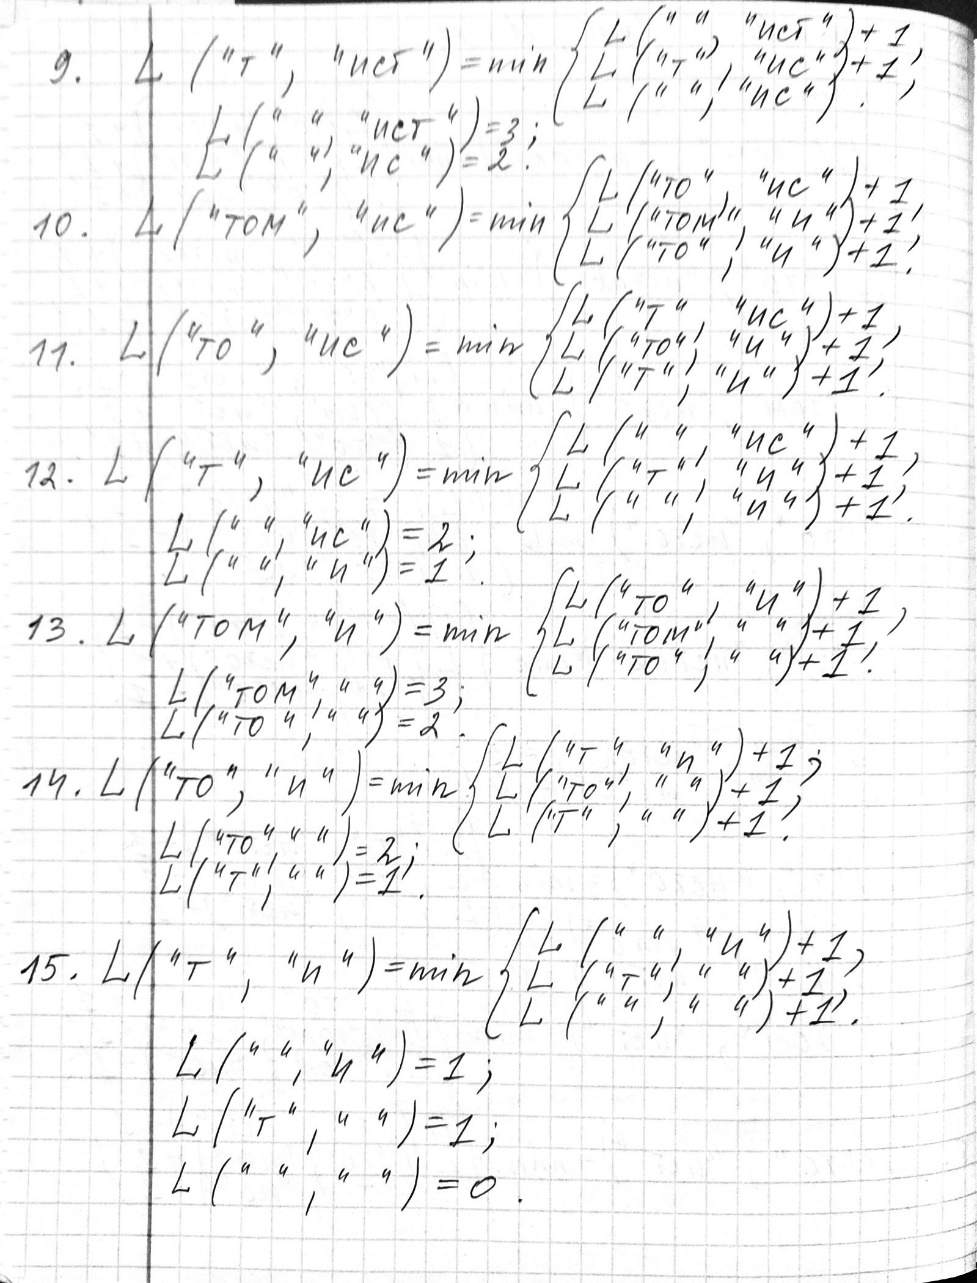 9. L ("т", "ист") = min { L (" ", "ист") + 1,
L ("т", "ис") + 1,
L (" ", "ис") .
L (" ", "ист") = 3;
L (" ", "ис") = 2.
10. L ("том", "ис") = min { L ("то", "ис") + 1,
L ("том", "и") + 1,
L ("то", "и") + 1.
11. L ("то", "ис") = min { L ("т", "ис") + 1,
L ("то", "и") + 1,
L ("т", "и") + 1.
12. L ("т", "ис") = min { L (" ", "ис") + 1,
L ("т", "и") + 1,
L (" ", "и") + 1.
L (" ", "ис") = 2;
L (" ", "и") = 1.
13. L ("том", "и") = min { L ("то", "и") + 1,
L ("том", " ") + 1,
L ("то", " ") + 1.
L ("том", " ") = 3;
L ("то", " ") = 2.
14. L ("то", "и") = min { L ("т", "и") + 1;
L ("то", " ") + 1,
L ("т", " ") + 1.
L ("то", " ") = 2;
L ("т", " ") = 1.
15. L ("т", "и") = min { L (" ", "и") + 1,
L ("т", " ") + 1,
L (" ", " ") + 1.
L (" ", "и") = 1;
L ("т", " ") = 1;
L (" ", " ") = 0.